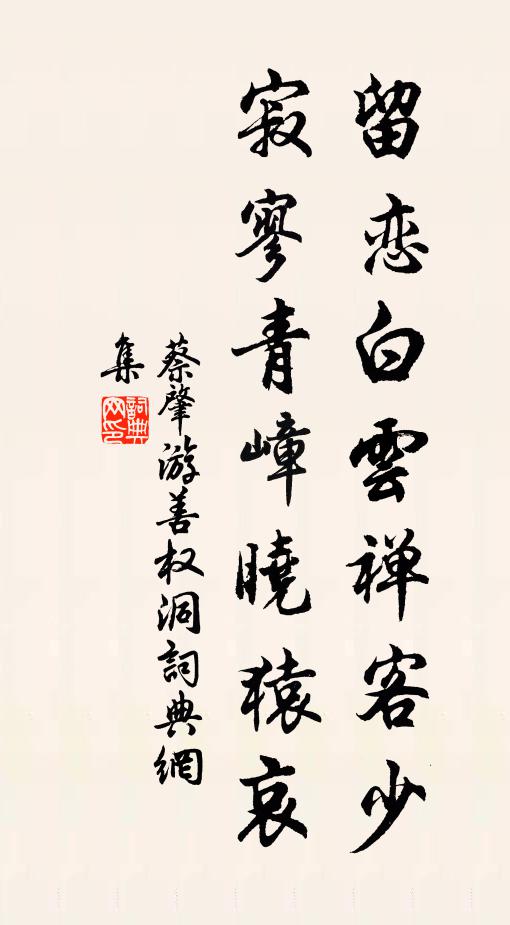 留恋白雲禅客少
寂寥青嶂曉猿哀
蔡肇游善权洞詞典網
集
詞典网印